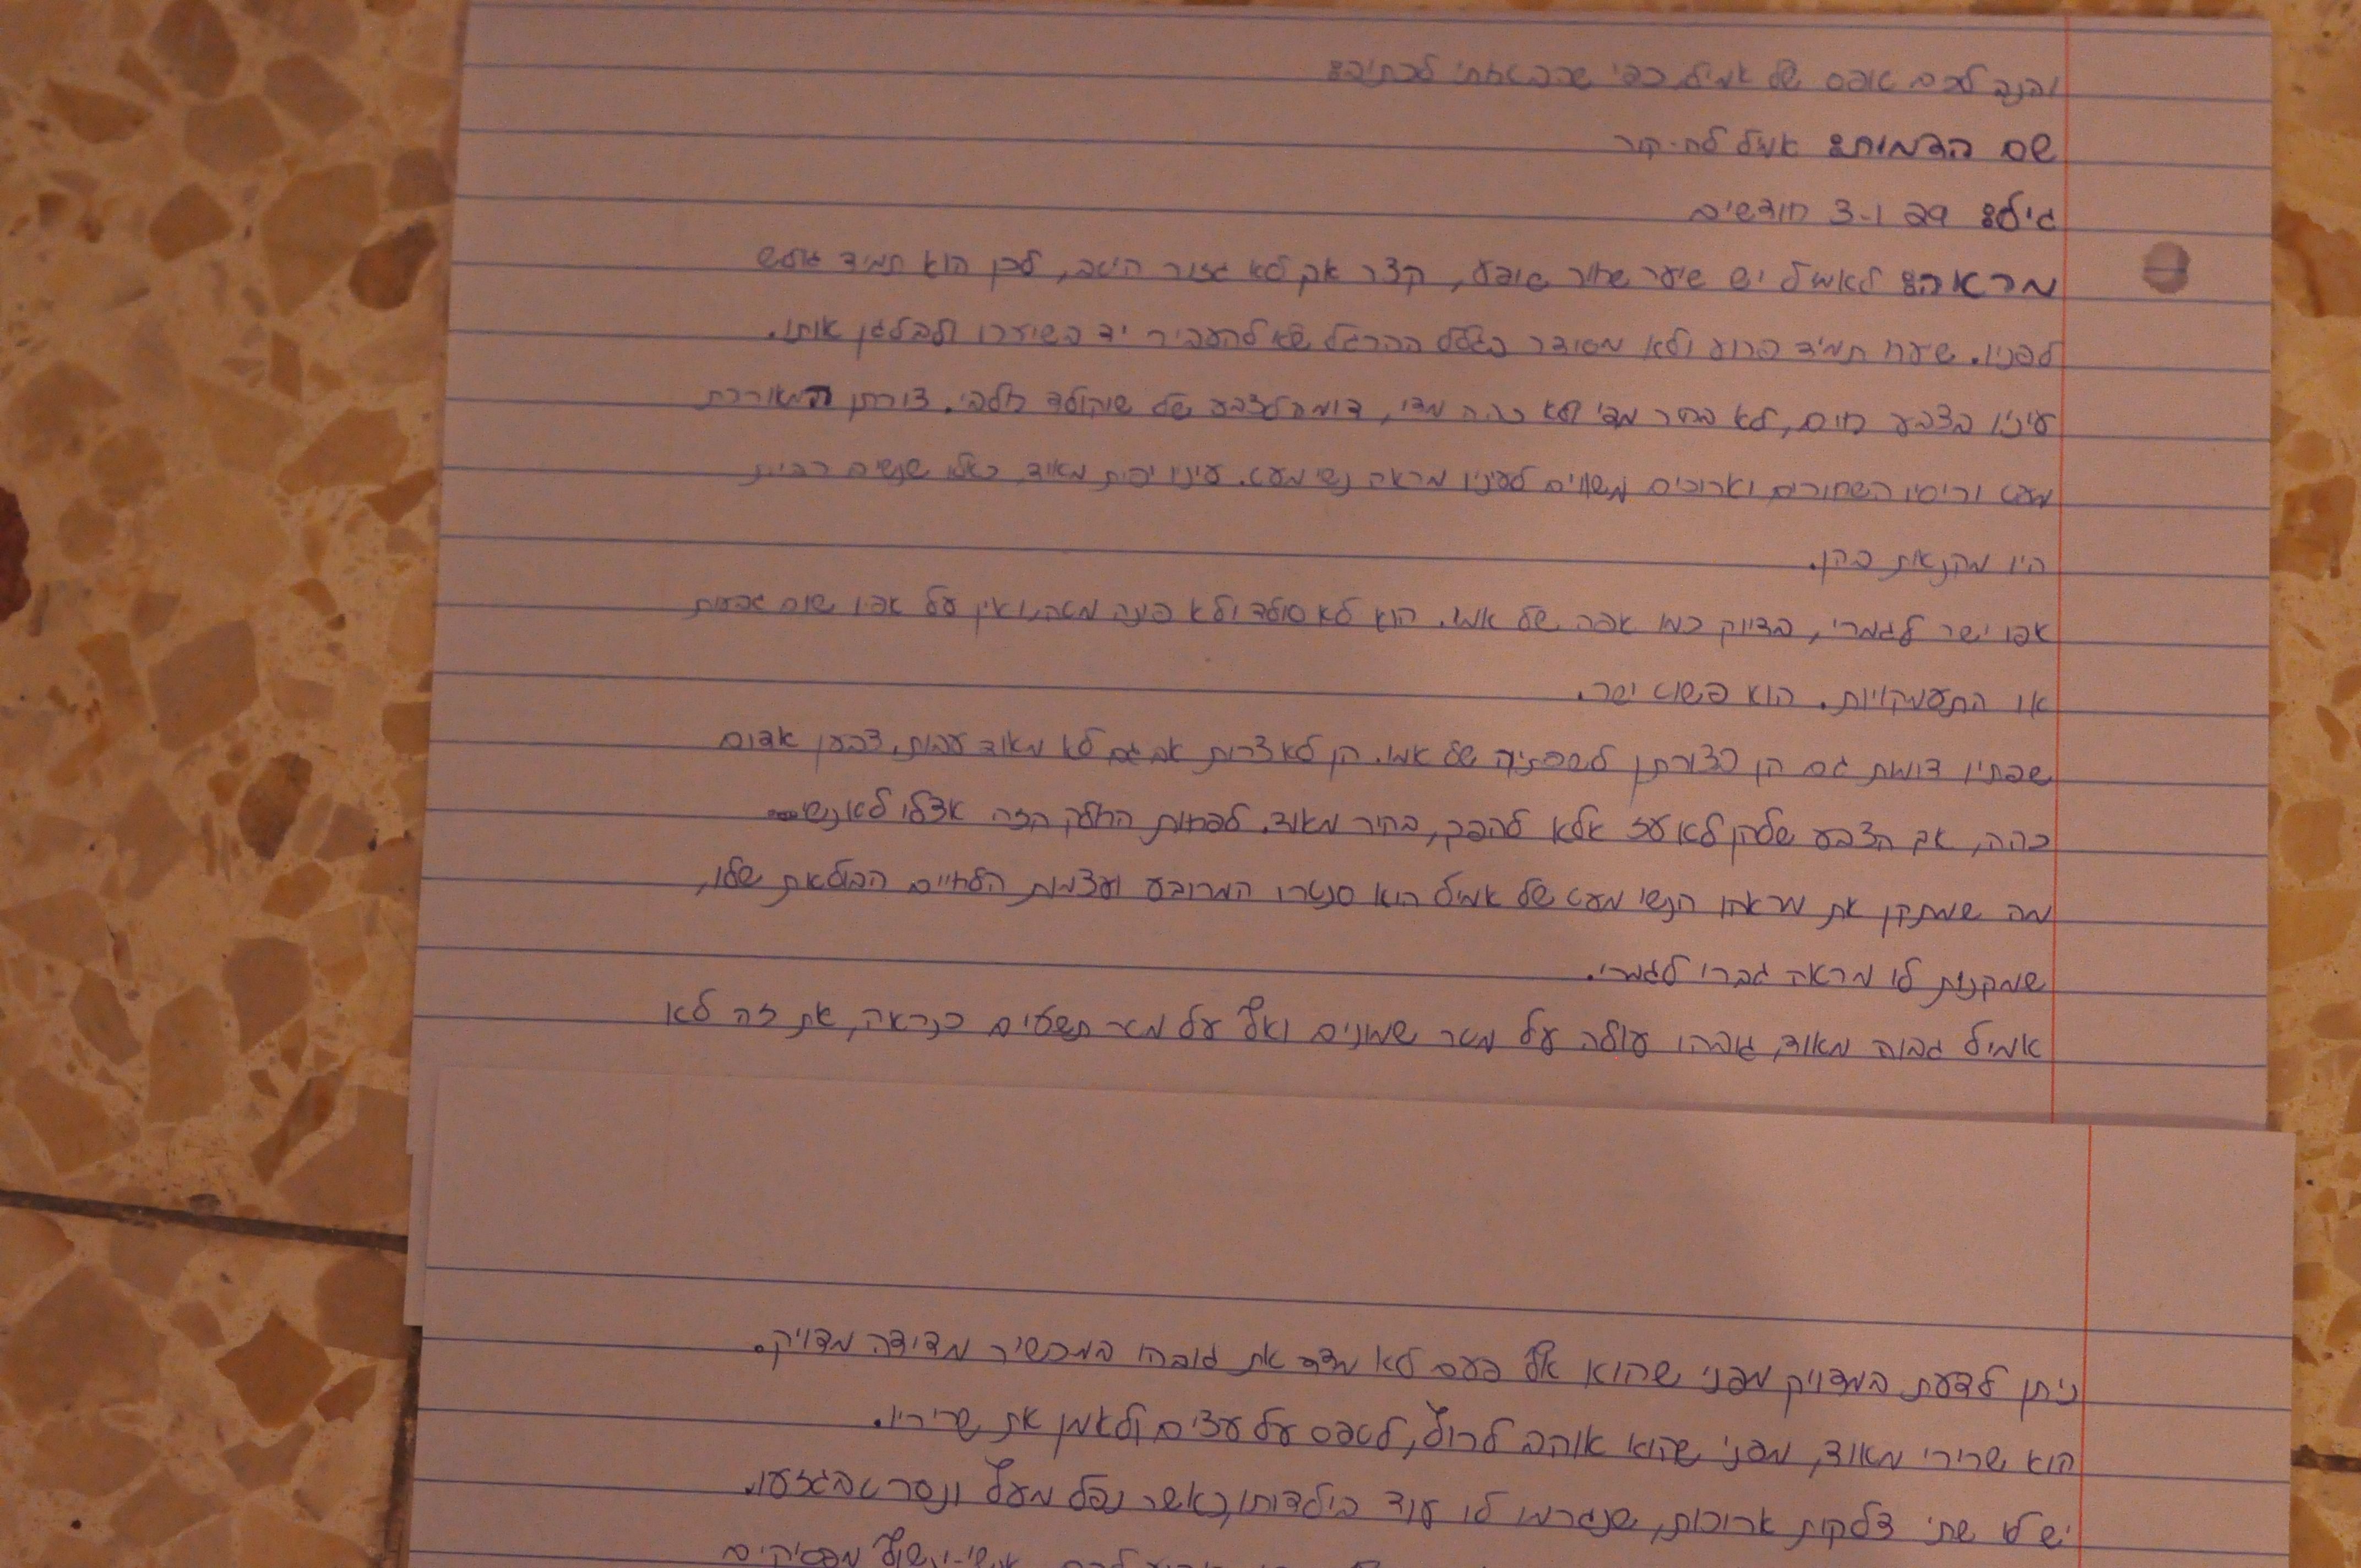 והנה לכם טופס של אמיל, כפי שהבטחתי לכתיבה:
שם הדמות: אמיל לח-קור
גיל: 29 ו-3 חודשים
מראה: לאמיל יש שיער שחור שופע, קצר אך לא גזור היטב, לכן הוא תמיד גולש
לפניו. שערו תמיד פרוע ולא מסודר בגלל ההרגל שלו להעביר יד בשיערו ולבלגן אותו.
עיניו בצבע חום, לא בהיר מדי ולא כהה מדי, דומה לצבע של שוקולד חלבי. צורתן המאורכת
מעט וריסיו השחורים וארוכים משווים לעיניו מראה נשי מעט. עיניו יפות מאוד, כאלו שנשים רבות
היו מקנאות בהן.
אפו ישר לגמרי, בדיוק כמו אפה של אמו. הוא לא סולד ולא פונה מטה, ואין על אפו שום גבעות
או התעמקויות. הוא פשוט ישר.
שפתיו דומות גם הן בצורתן לשפתיה של אמו. הן לא צרות אך גם לא מאוד עבות. צבען אדום
כהה, אך הצבע שלהן לא עז אלא להפך, בהיר מאוד. לפחות החלק הזה אצלו לא נשי.
מה שמתקן את מראהו הנשי מעט של אמיל הוא סנטרו המרובע ועצמות הלחיים הבולטות שלו,
שמקנות לו מראה גברי לגמרי.
אמיל גבוה מאוד, גובהו עולה על מטר שמונים ואף על מטר תשעים כנראה, את זה לא
ניתן לדעת במדויק מפני שהוא אף פעם לא מדד את גובהו במכשיר מדידה מדויק.
הוא שרירי מאוד, מפני שהוא אוהב לרוץ, לטפס על עצים ולאמן את שריריו.
יש לו שתי צלקות ארוכות, שנגרמו לו עוד בילדותו, כאשר נפל מעץ ונסרט בגזעו.